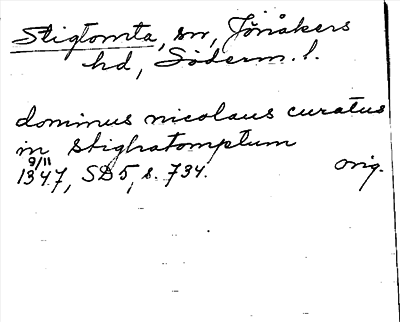 Stigtomta, sn, Jönåkers
hd, Söderm. l.
dominus nicolaus curatus
in stighatomptum
9/11
1347, SD5, s. 734. orig.